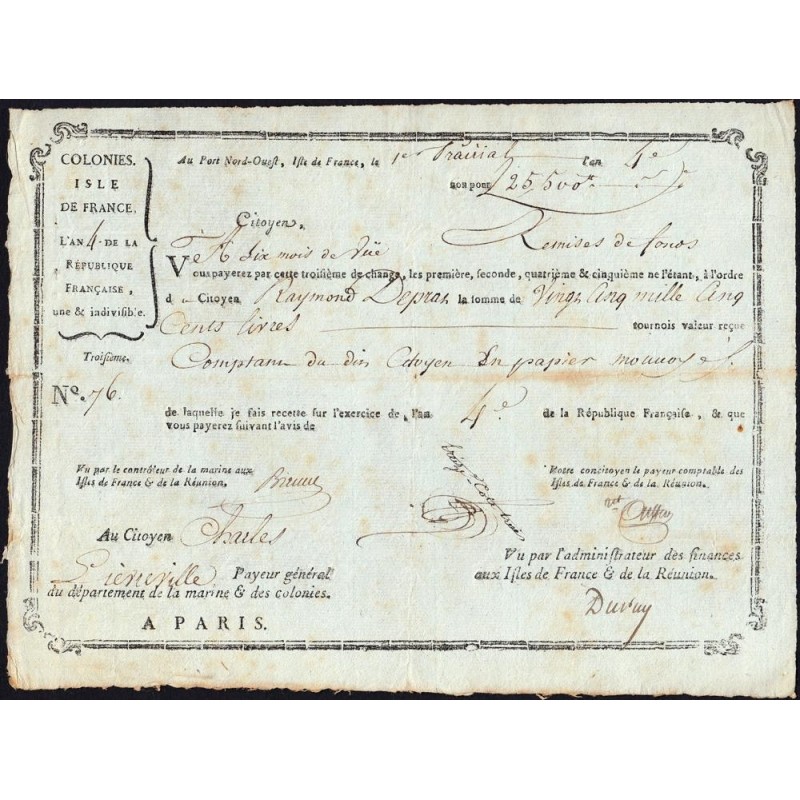 COLONIES.
ISLE
DE FRANCE.
L'AN 4. DE LA
RÉPUBLIQUE
FRANÇAISE,
une & indivisible.
Troisième.
No. 76.
Au Port Nord-Ouest, Isle de France, le 1er Prairial l'an 4e
bon pour 25,500
Citoyen,
A Six mois de vüe Remises de fonds
Vous payerez par cette troisième de change, les première, seconde, quatrième & cinquième ne l'étant, à l'ordre
d Citoyen Raymond Depras la somme de Vingt Cinq mille Cinq
Cents livres tournois valeur reçue
Comptant du dit Citoyen En papier monnoye
de laquelle je fais recette sur l'exercice de l'an 4e de la République Française, & que
vous payerez suivant l'avis de
Vu par le contrôleur de la marine aux
Isles de France & de la Réunion.
Votre concitoyen le payeur comptable des
Isles de France & de la Réunion.
Au Citoyen Charles
Payeur général
du département de la marine & des colonies.
A PARIS.
Vu par l'administrateur des finances
aux Isles de France & de la Réunion.
Duvuy